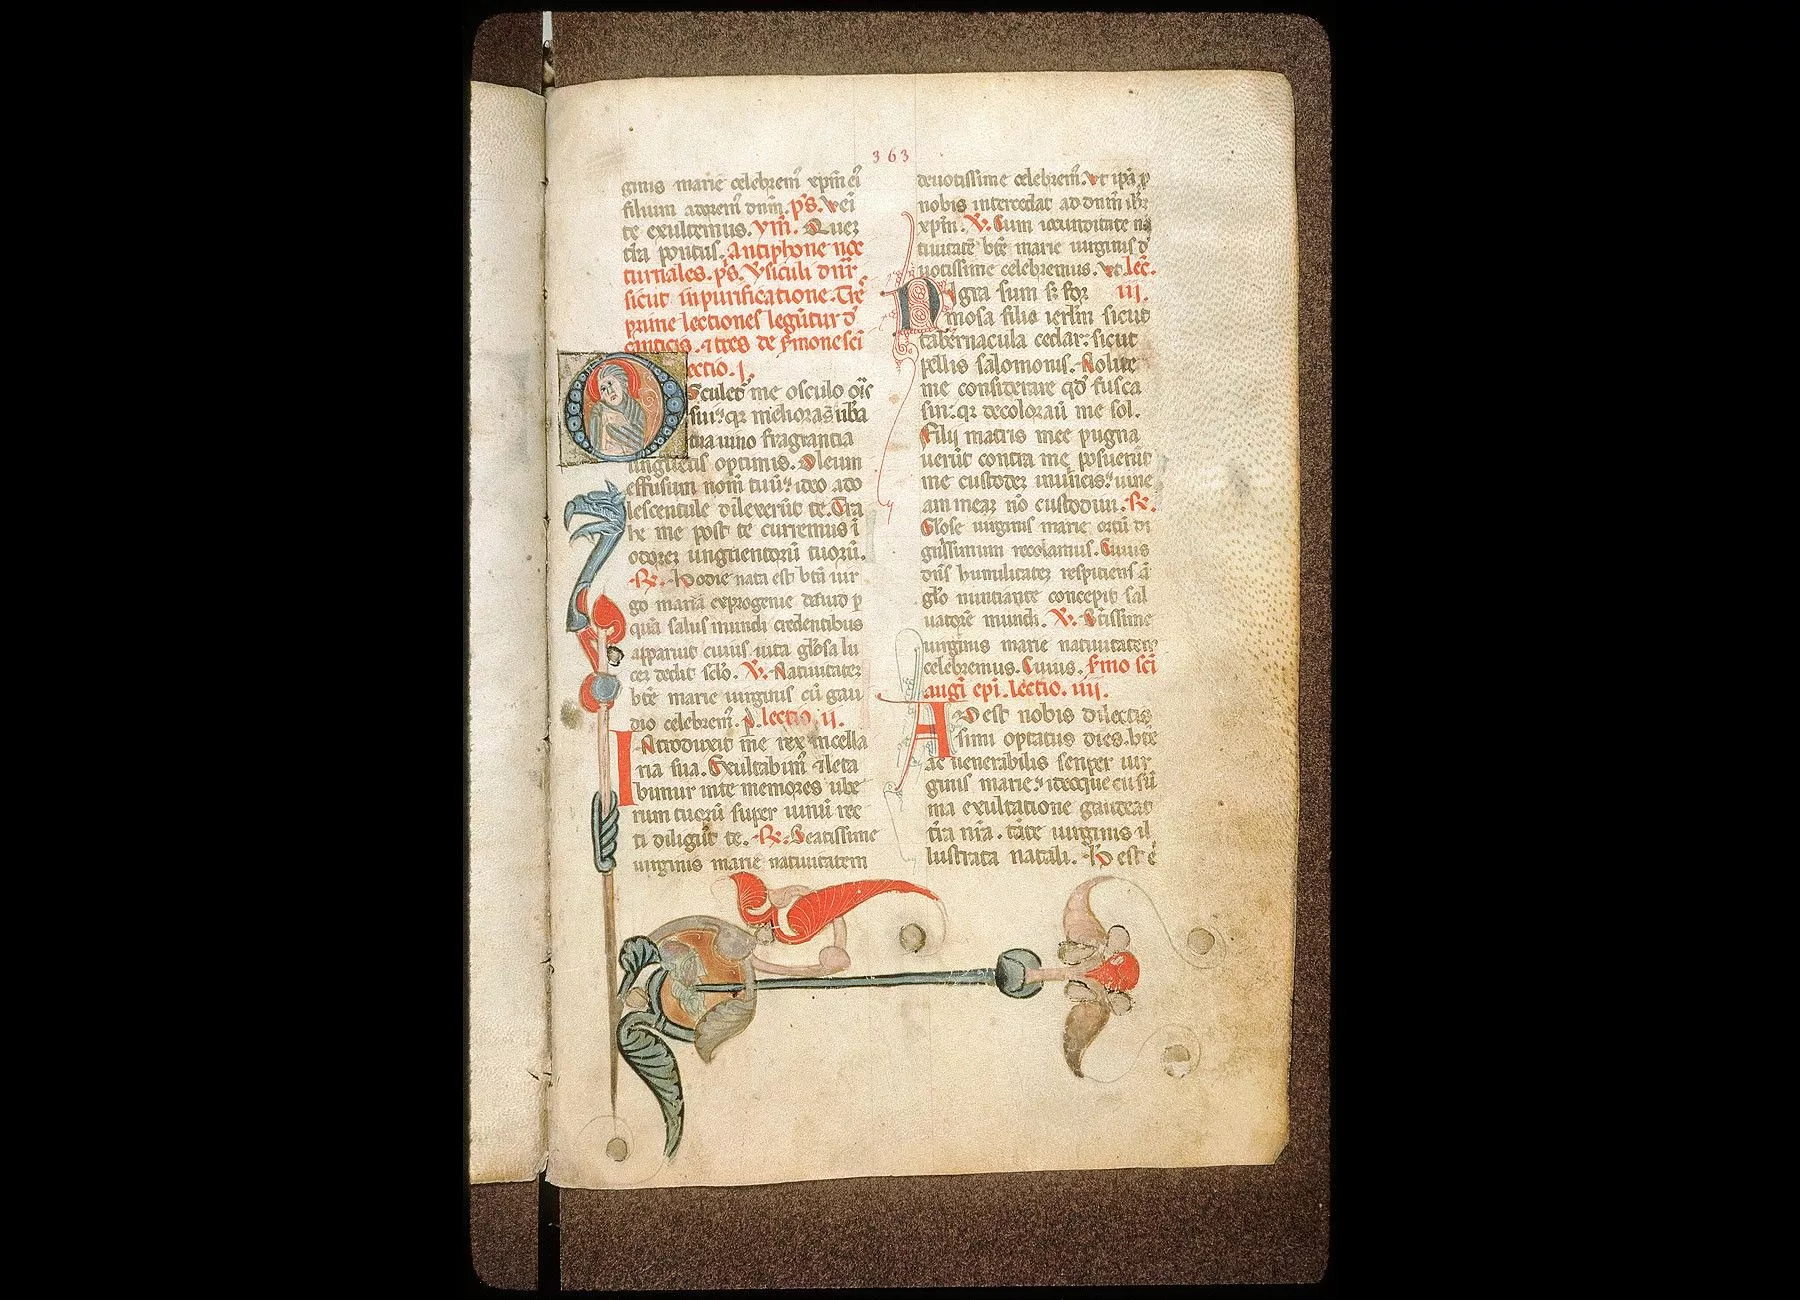 363
ginis marie celebrem̄ xp̄m ei
filium adorem̄ dn̄m. ps. Uēi
te exultemus. ym̄. Quez
tr̄a pontus. Antiphone noc
turnales. ps. v̄siculi dn̄r
sicut in purificatione. Tre
prime lectiones legūtur d
canticis. ⁊ tres de s̄mone sci
lectio. I.
Osculet᷑ me osculo oris
sui: qr meliora sūt ubera
tua uino fragrantia
unguētis optimis. Oleum
effusum nom̄ tuū: ideo ado
lescentule dilexerūt te. Tra
he me post te curremus ī
odorez unguentorū tuorū.
R̄. Hodie nata est bt̄a uir
go maria ex progenie dauid p
quā salus mundi credentibus
apparuit cuius uita gl̄osa lu
cez dedit sc̄lo. V̄. Natiuitatez
bt̄e marie uirginis cū gau
dio celebrem̄. p. lectio. ii.
Introduxit me rex in cella
ria sua. Exultabim̄ ⁊ leta
bimur in te memores ube
rum tuorū super uinū rec
ti diligūt te. R̄. Beatissime
uirginis marie natiuitatem
deuotissime celebrem̄. Ut ip̄a p
nobis intercedat ad dn̄m ih̄z
xp̄m. V̄. Cum iocunditate na
tiuitatē bt̄e marie uirginis d
uotissime celebremus. Ut lec.
Nigra sum sz for iii.
mosa filie ierl̄m sicut
tabernacula cedar: sicut
pellis salomonis. Nolite
me considerare qd̄ fusca
sim: qr decolorauī me sol.
Filij matris mee pugna
uerūt contra me posuerūt
me custodez in uineis: uine
am meaz nō custodiui. R̄.
Gl̄ose uirginis marie ortū di
gnissimum recolamus. Cuius
dn̄s humilitatez respiciens ā
gl̄o nuntiante concepit sal
uatorē mundi. V̄. Btissime
uirginis marie natiuitatem
celebremus. Cuius. s̄mo sc̄i
augī ep̄i. lectio. iiii.
Adest nobis dilectis
simi optatus dies. bt̄e
ac uenerabilis semper uir
ginis marie: ideoque cū sū
ma exultatione gaudeat
tr̄a nr̄a. tāte uirginis il
lustrata natali. Hec est ē